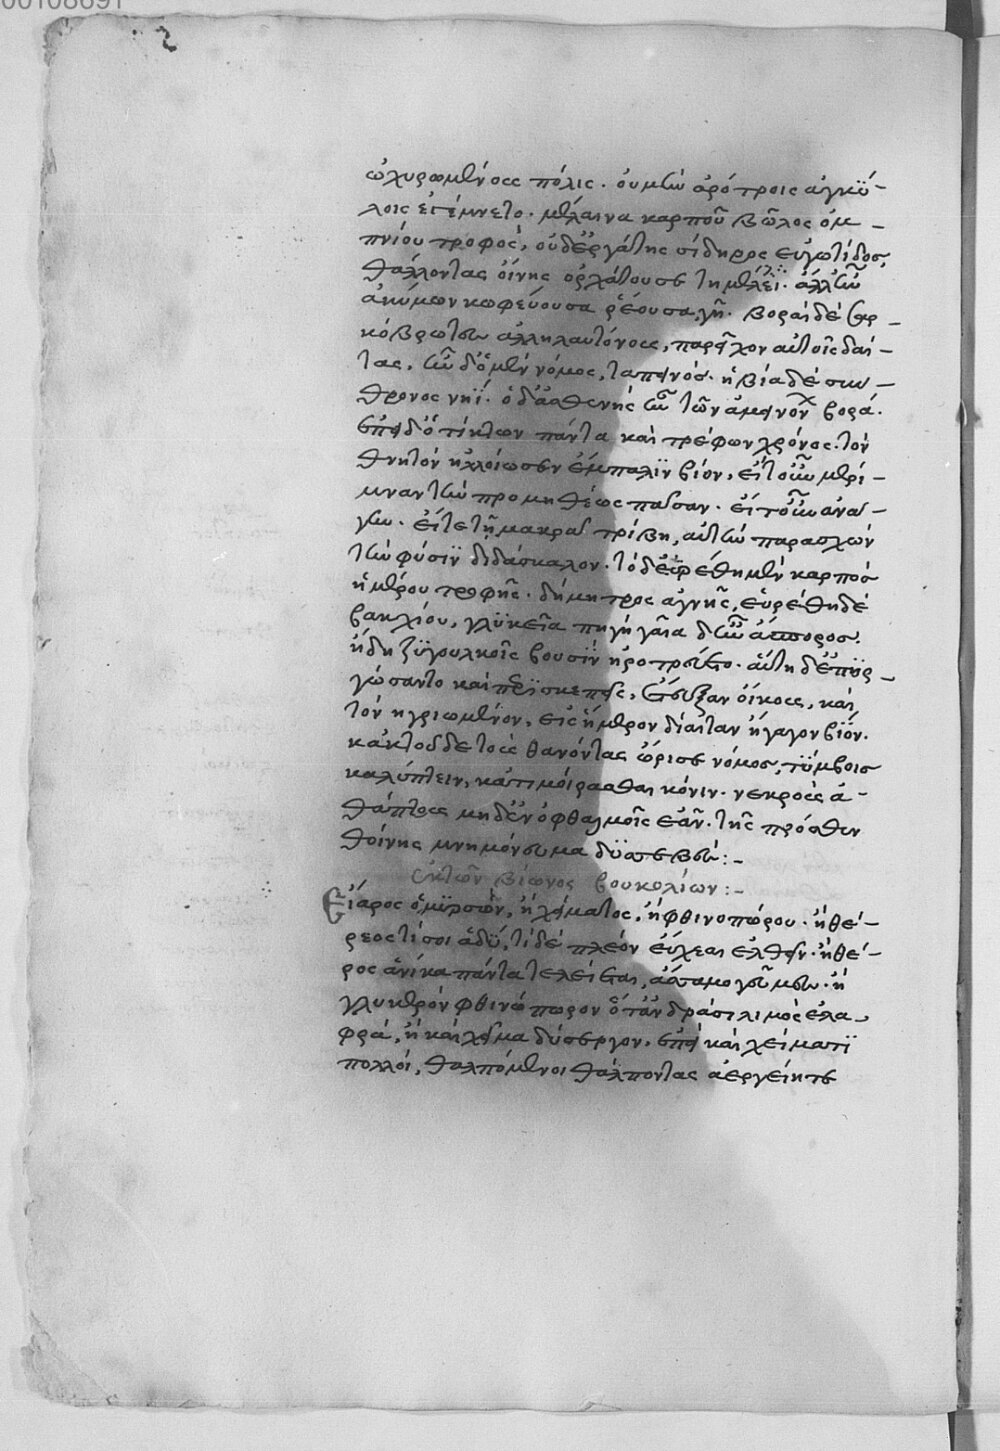 ὠχυρωμένους πόλις. οὐ μὴν ἀρότροις ἀγκύ-
λοις ἐτέμνετο. μέλαινα καρποῦ βῶλος ὀμ-
πνίου τροφός, οὐδ' ἐργάτης σίδηρος εὐιώτιδος,
θάλλοντας οἴνης ὀρχάτους ἐτημέλει. ἀλλ' ἦν
ἀκύμων κωφεύουσα ῥέουσα γῆ. βοραὶ δὲ σαρ-
κόβρωτες ἀλληλοκτόνους, παρεῖχον αὐτοῖς δαί-
τας. ἦν δ' ὁ μὲν νόμος, ταπεινός. ἡ βία δὲ συν-
θρονος νηΐ. ὁ δ' ἀσθενὴς ἦν τῶν ἀμεινόνων βορά.
ἐπεὶ δ' ὁ τίκτων πάντα καὶ τρέφων χρόνος. τὸν
θνητὸν ἠλλοίωσεν ἔμπαλιν βίον, εἴτ' οὖν μέρι-
μναν τὴν προμηθέως πασαν. εἴτ' οὖν ἀναγ-
γην. εἴτε τῇ μακρᾷ τρίβῃ, αὐτὴν παρασχὼν
τὴν φύσιν διδάσκαλον. τὸ δ' εὑρέθη μὲν καρπὸς
ἡμέρου τροφῆς. δήμητρος ἁγνῆς, εὑρέθη δὲ
βακχίου, γλυκεῖα πηγὴ γαῖα δ' ἦν ἄσπορος.
ἤδη ζυγουλκοῖς βουσὶν ἠροτρεύετο. ἄστη δ' ἐπυρ-
γώσαντο καὶ περισκεπεῖς, ἔτευξαν οἴκους, καὶ
τὸν ἠγριωμένον, εἰς ἥμερον δίαιταν ἤγαγον βίον.
κἀκ τοῦδε τοὺς θανόντας ὥρισε νόμος, τύμβοις
καλύπτειν, κἀπιμοιράσθαι κόνιν. νεκροὺς ἀ-
θάπτους μηδ' ἐν ὀφθαλμοῖς ἐᾶν. τῆς πρόσθεν
θοίνης μνημόνευμα δυσσεβῶν:-
ἐκ τῶν βίωνος βουκολίων:-
Εἴαρος ὦ μύρσων, ἢ χείματος, ἢ φθινοπώρου. ἢ θέ-
ρεος τί σοι ἁδύ, τί δὲ πλέον εὔχεαι ἐλθεῖν. ἢ θέ-
ρος ἁνίκα πάντα τελείεται, ὅσσα μογεῦμεν. ἢ
γλυκερὸν φθινόπωρον ὅτ' ἀνδράσι λιμὸς ἐλα-
φρά, ἢ καὶ χεῖμα δύσεργον. ἐπεὶ καὶ χείματι
πολλοί, θαλπόμενοι θάλποντας ἀεργείῃ τε